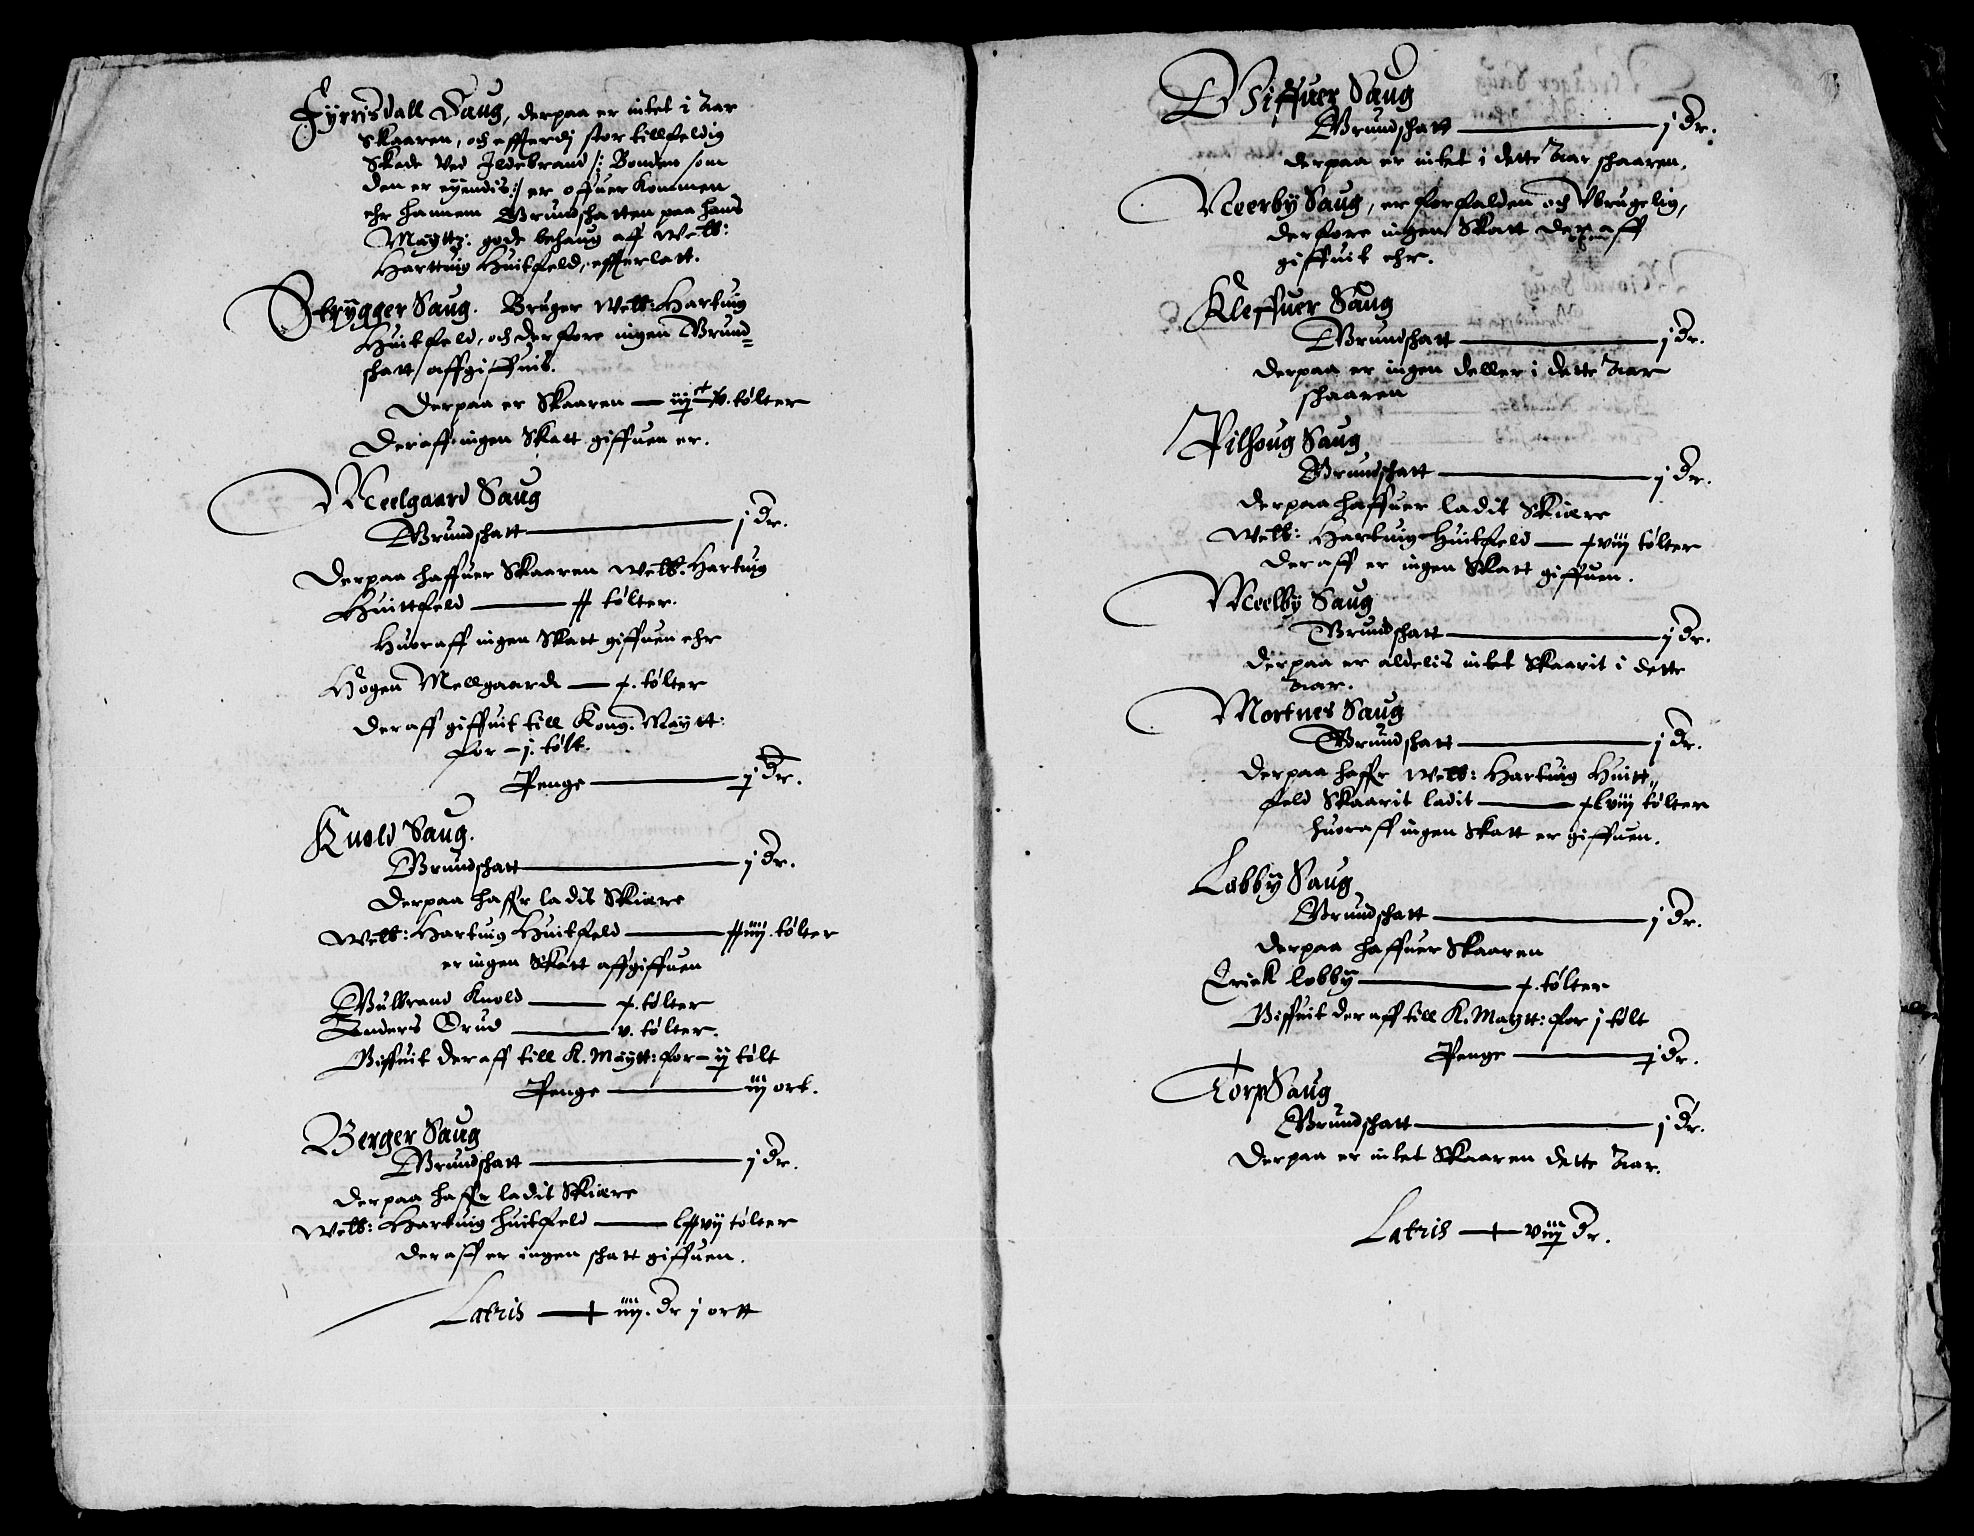 Fyrrisdall Saug, derpaa er intet i Aar
Skaaren, och effterdj stor tillfeldig
Skade ved Jldebrand /: Bonden som
den er eyendis :/ er offuer kommen
ehr hannem Grundschatten paa hans
Maÿttz: gode behaug aff Welb:
Harttuig Huitfeld, efferlatt.
Strÿgger Saug. Bruger Welb: Hartuig
Huitfeld, och derfore ingen Grund=
schatt affgiffuis.
Derpaa er Skaaren — tølter
Deraff ingen Skatt giffuen er.
Meelgaard Saug
Grundschatt — j dr.
Derpaa haffuer Skaaren Welb. Hartuig
Huittfeld — xx tølter.
Huoraff ingen Skatt giffuen ehr
Hogen Mellgaard — x. tølter
Deraff giffuit till Kong. Maÿtt:
for — j. tølt.
Penge — dr.
Knold Saug.
Grundschatt — j dr.
Derpaa haffr ladit Skiære
Welb: Hartuig Huitfeld — xxiiij. tølter
er ingen Skatt affgiffuen
Gulbrand Knold — x. tølter
Anders Grud — v. tølter.
Giffuit deraff till K. Maÿtt: for — tølt
Penge — iij ort.
Berger Saug
Grundschatt — j dr.
Derpaa haffr ladit Skiære
Welb: Hartuig Huitfeld — lxxvij tølter
deraff er ingen schatt giffuen.
Latris — iiij. dr j ortt
Wiffuer Saug
Grundschatt — j dr.
derpaa er intet i dette Aar schaaren.
Neerbÿ Saug, er forfalden och Vbrugelig,
derfore ingen Skatt deraff
giffuit ehr.
Kleffuer Saug
Grundschatt — j dr.
Derpaa er ingen deller i dette Aar
schaaren
Pilhoug Saug
Grundschatt — j dr.
Derpaa haffuer ladit Skiære
Welb: Hartuig Huitfeld — xviij tølter
Deraff er ingen Skatt giffuen.
Meelbÿ Saug
Grundschatt — j dr.
Derpaa er aldelis intet Skaarit i dette
Aar.
Mortnes Saug
Grundschatt — j dr.
Derpaa haffr Welb: Hartuig Huitt„
feld Skaarit ladit — xlviij tølter
huoraff ingen Skatt er giffuen.
Lobbÿ Saug
Grundschatt — j dr.
Derpaa haffuer Skaaren
Erick Lobbÿ — x. tølter
Giffuit deraff till K. Maÿtt: for j tølt
Penge — dr.
Torp Saug
Grundschatt — j dr.
Derpaa er intet Skaaren dette Aar.
Latris — dr.